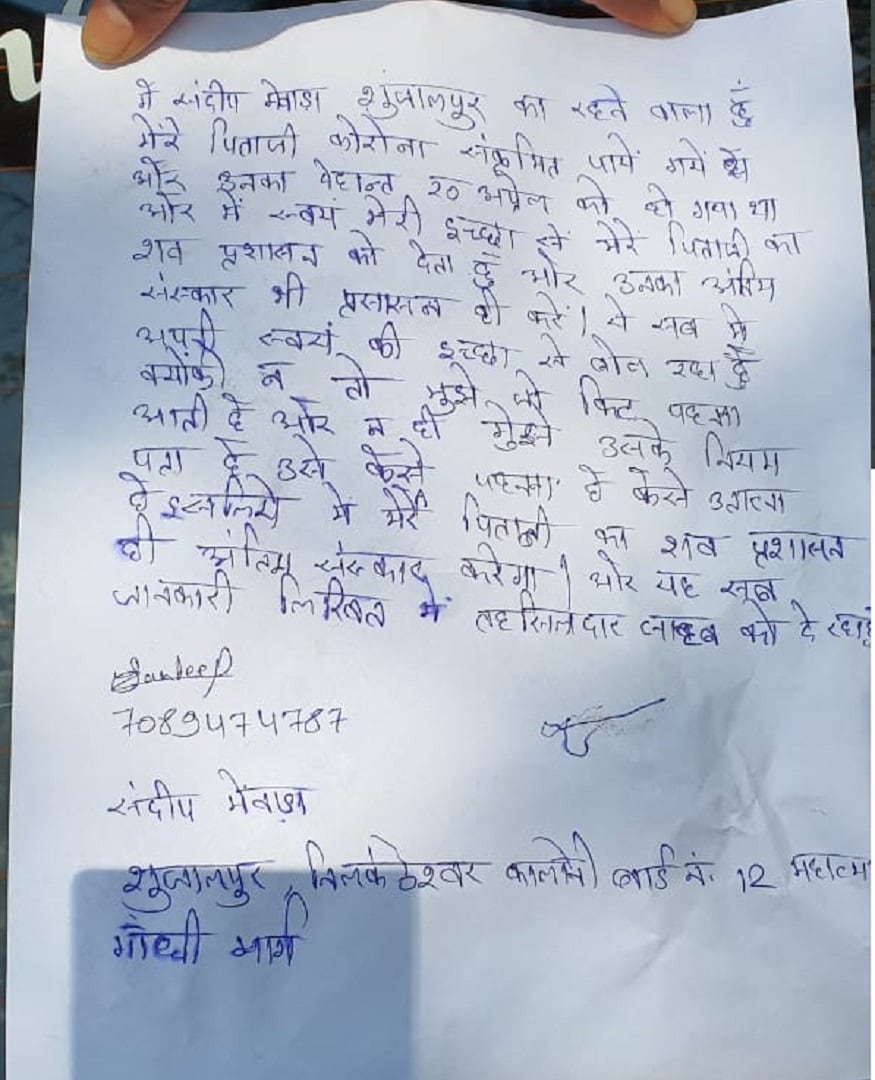 में संदीप मेवाडा शुजालपुर का रहने वाला हुँ
मेरे पिताजी कोरोना संक्रमित पायें गयें थे
ओर इनका देहान्त २० अप्रेल को हो गया था
ओर में स्वयं मेरी इच्छा से मेरे पिताजी का
शव प्रशासन को देता हुँ ओर उनका अंतिम
संस्कार भी प्रसासन ही करें। ये सब में
अपनी स्वयं की इच्छा से बोल रहा हुँ
क्योंकी न तो मुझे पी किट पहनना
आती हे ओर न ही मुझे उसके नियम
पता हे उसे केसे पहनना हे केसे उतारना
हे इसलिये में मेरे पिताजी का शव प्रशासन
ही अंतिम संस्कार करेगा। ओर यह
जानकारी लिखित में तहसिलदार साहब को दे रहा हुँ
Sandeep
7089474787
संदीप मेवाडा
शुजालपुर, निलकंठेश्वर कालोनी वार्ड नं. 12 महात्मा
गाँधी मार्ग